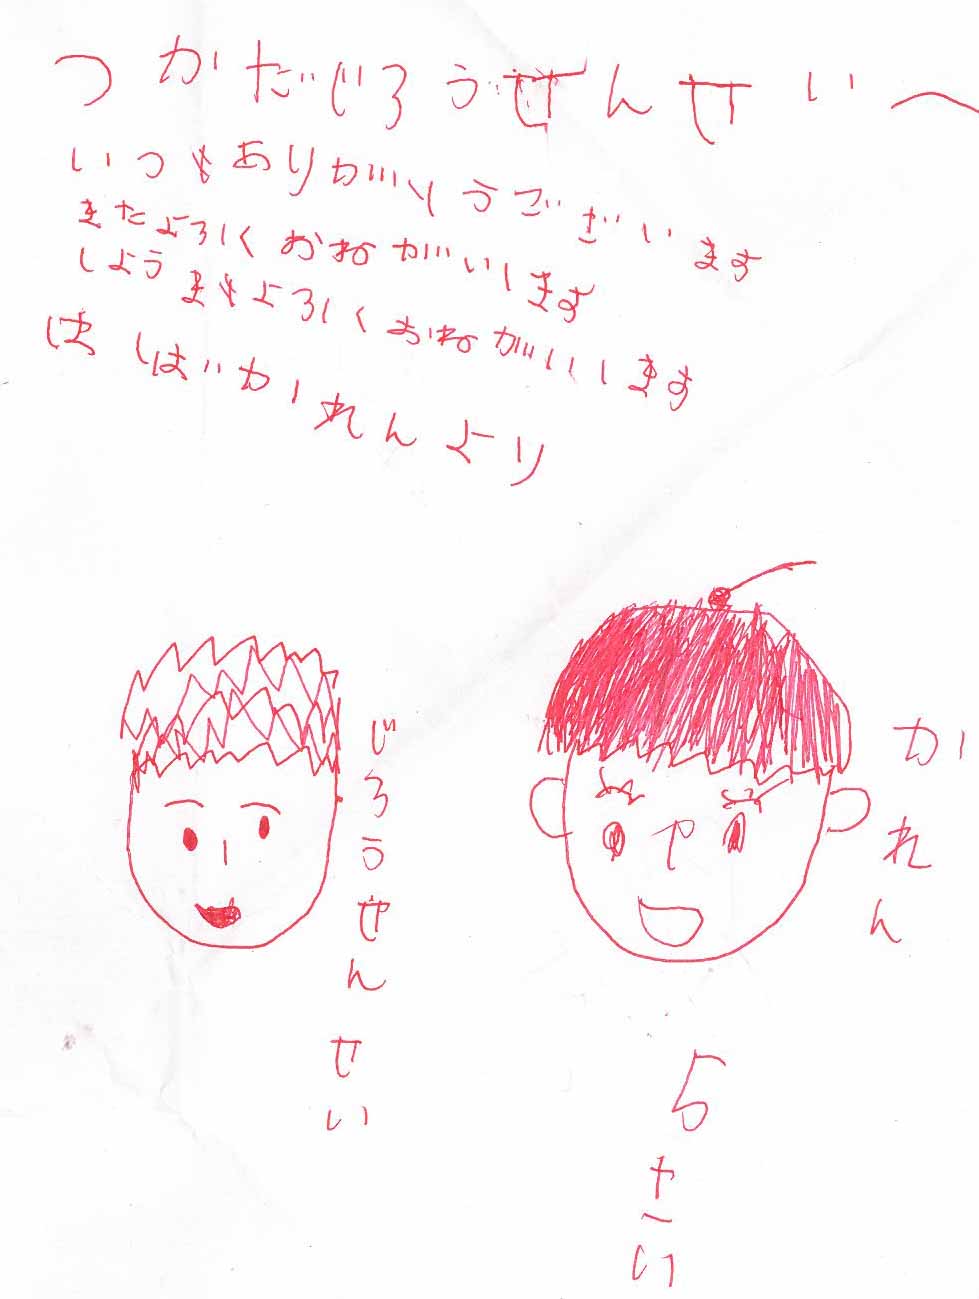 つかだじろうせんせいへ
いつもありがとうございます
またよろしくおねがいします
しようまもよろしくおねがいします
はしばかれんより
じろうせんせい
かれん
5さい